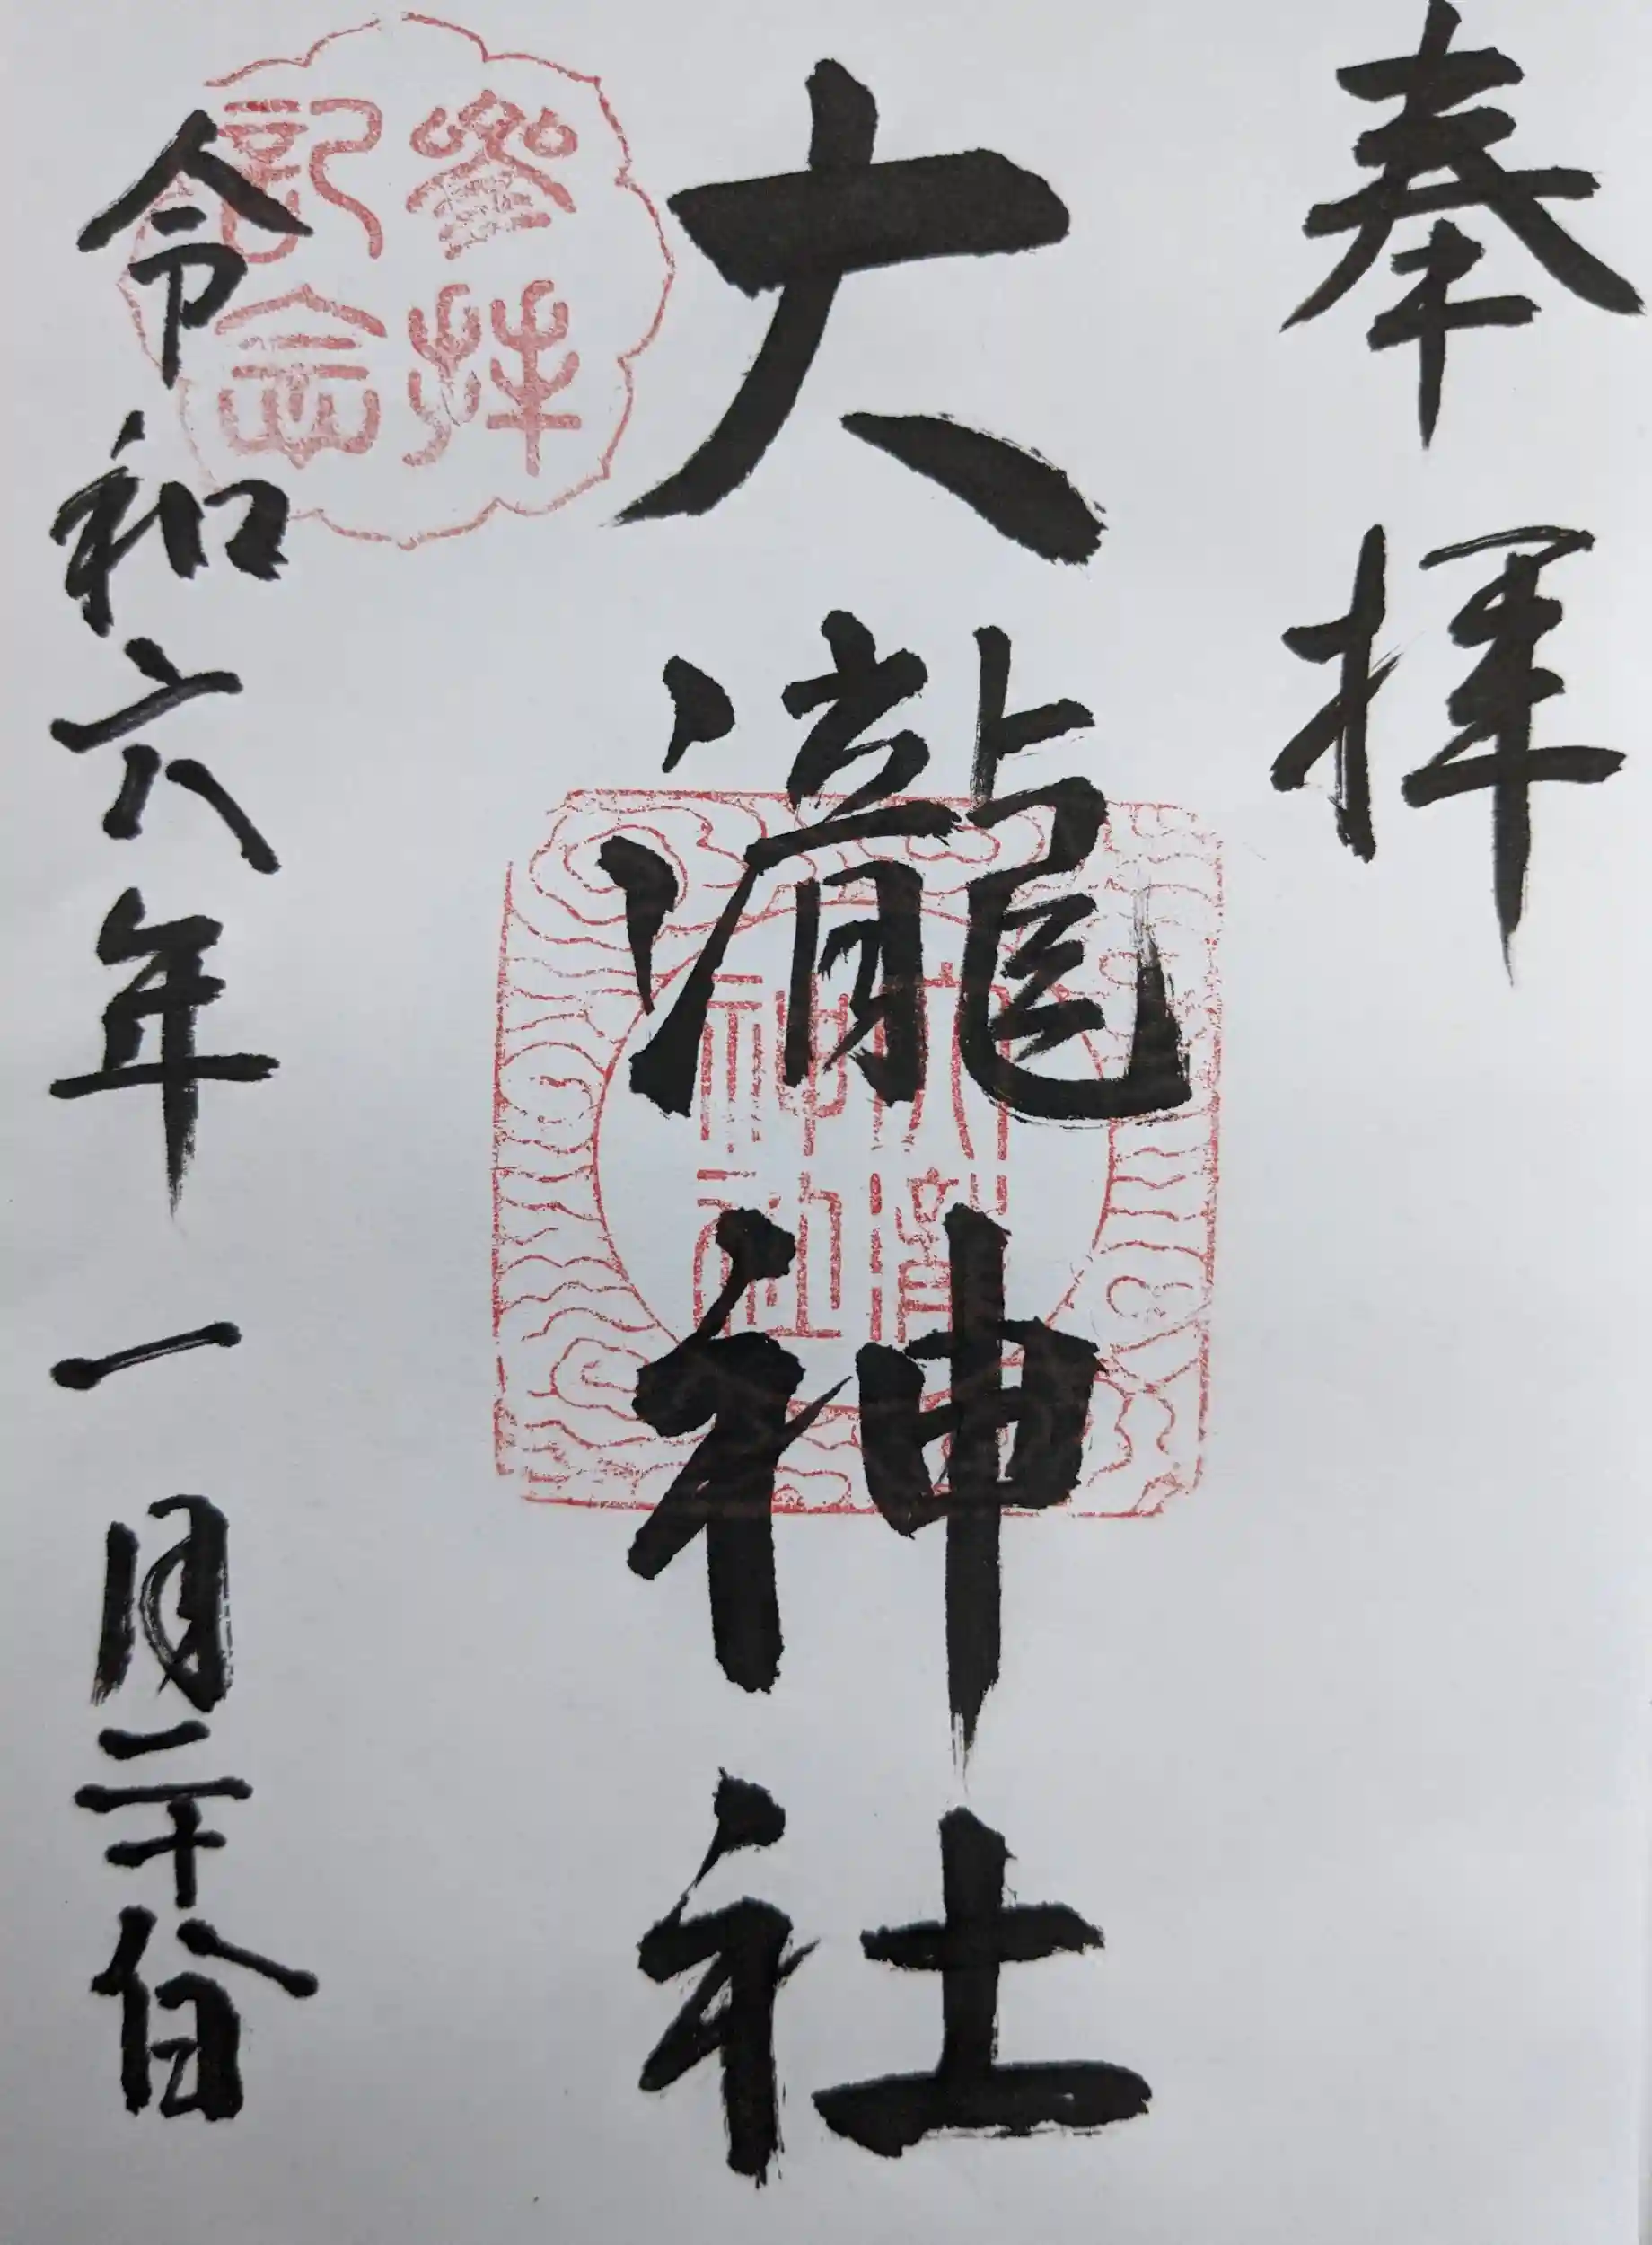 奉拝
大瀧神社
令和六年一月二十八日
参拝記念
大瀧神社